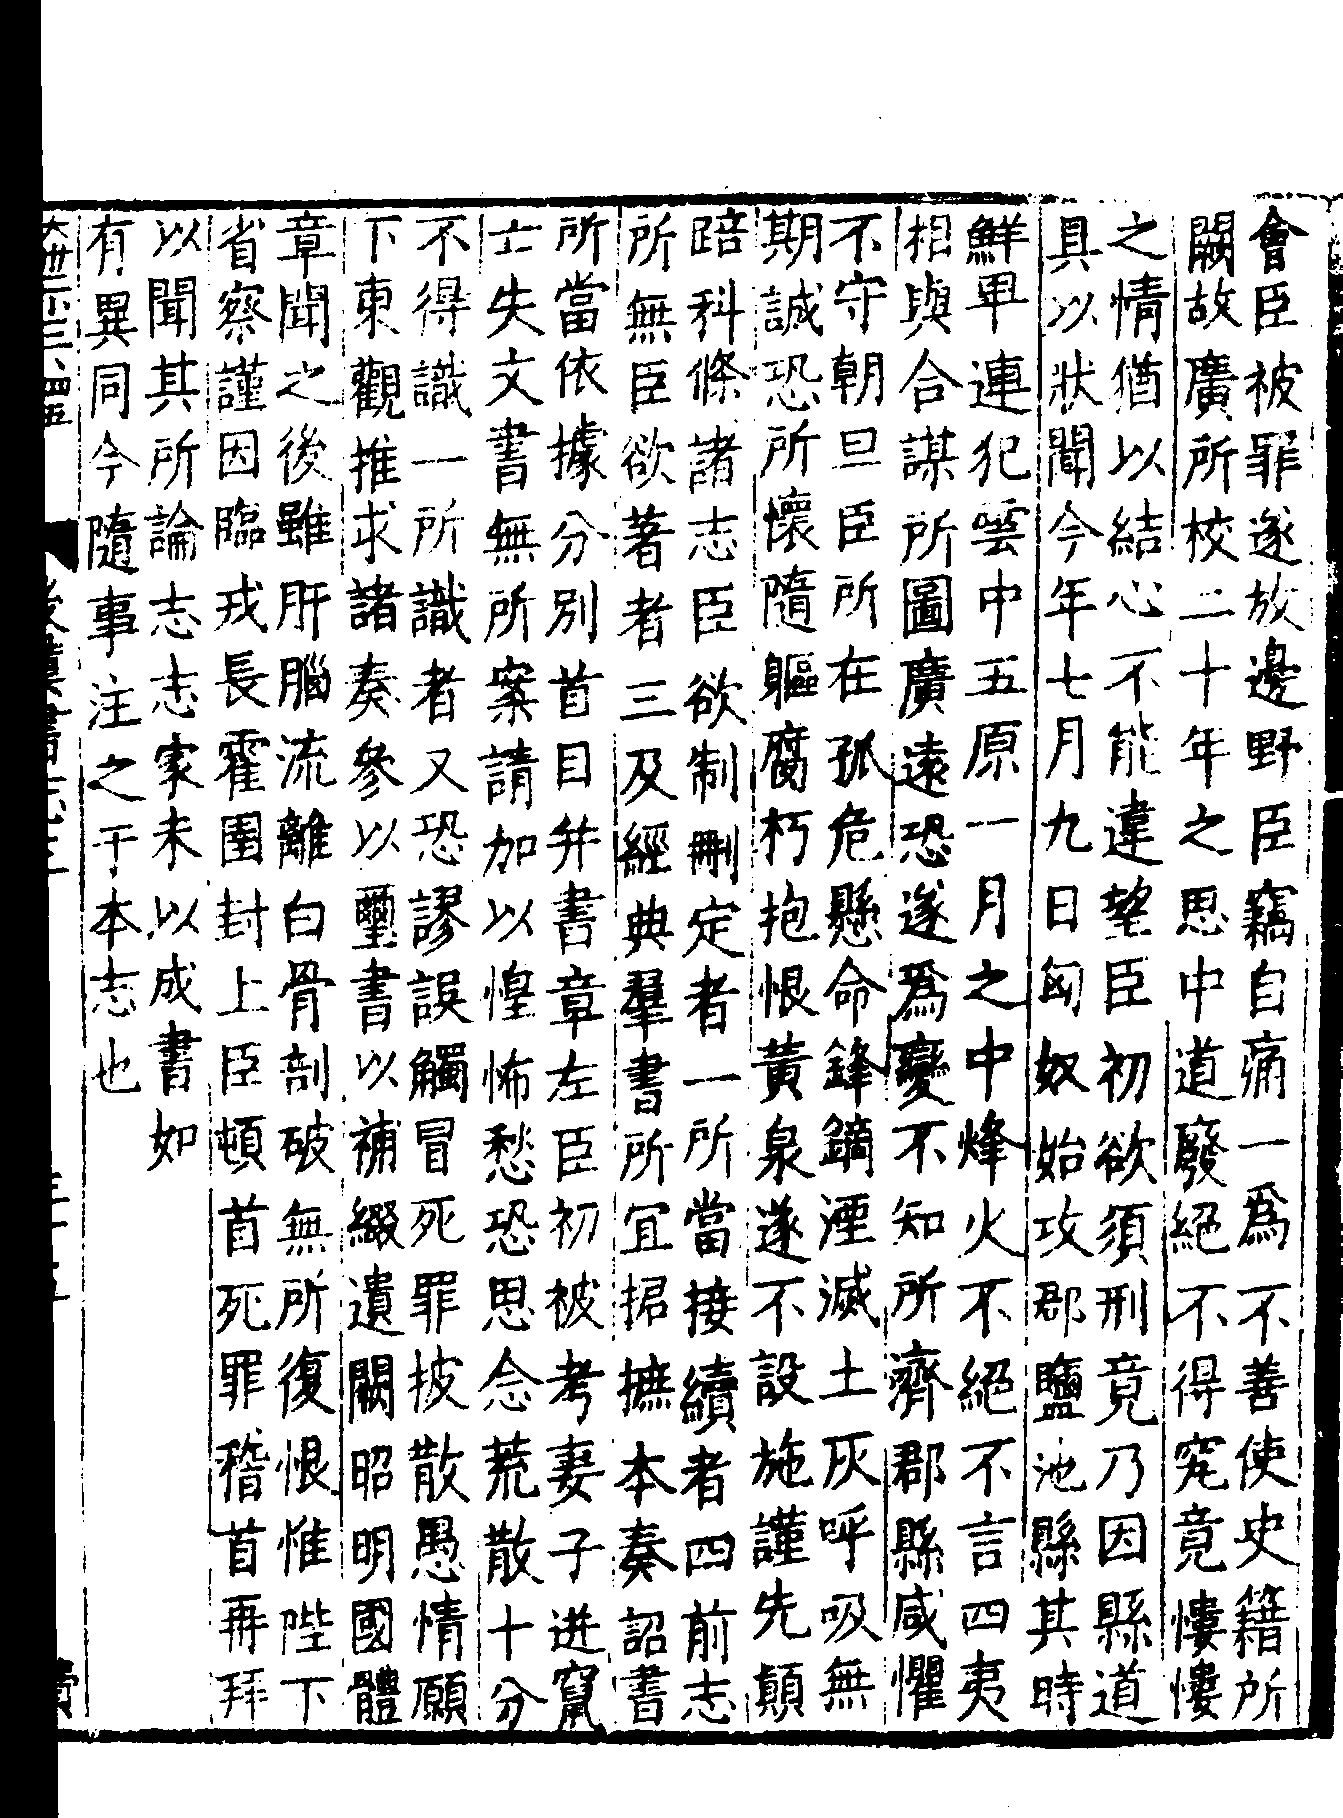 會臣被罪遂放邊野臣竊自痛一爲不善使史籍所
闕故廣所校二十年之思中道廢絕不得究竟慺慺
之情猶以結心不能違望臣初欲須刑竟乃因縣道
具以狀聞今年七月九日匈奴始攻郡鹽池縣其時
鮮卑連犯雲中五原一月之中烽火不絕不言四夷
相與合謀所圖廣遠恐遂爲變不知所濟郡縣咸懼
不守朝旦臣所在孤危懸命鋒鏑湮滅土灰呼吸無
期誠恐所懷隨軀腐朽抱恨黃泉遂不設施謹先顛
踣科條諸志臣欲制刪定者一所當接續者四前志
所無臣欲著者三及經典羣書所宜捃摭本奏詔書
所當依據分別首目并書章左臣初被考妻子迸竄
亡失文書無所案請加以惶怖愁恐思念荒散十分
不得識一所識者又恐謬誤觸冒死罪披散愚情願
下東觀推求諸奏參以璽書以補綴遺闕昭明國體
章聞之後雖肝腦流離白骨剖破無所復恨惟陛下
省察謹因臨戎長霍圉封上臣頓首死罪稽首再拜
以聞其所論志志家未以成書如
有異同今隨事注之于本志也
後漢書志三